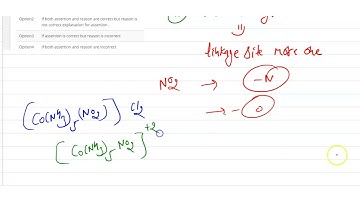 Option2 If both assertion and reason are correct but reason is
not correct explanation for assertion .
Option3 If assertion is correct but reason is incorrect
Option4 If both assertion and reason are incorrect
linkage site more one
NO2 → -N
→ -O
[Co(NH3)5(NO2)]Cl2
[Co(NH3)5NO2]+2